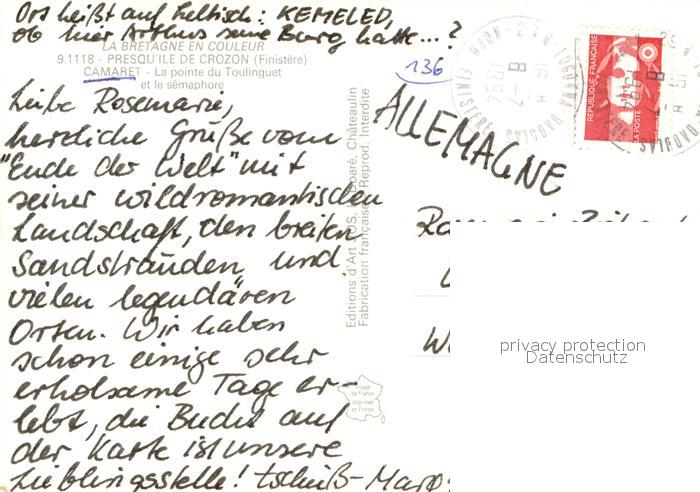 Ort heißt auf keltisch: KEMELED,
ob hier Arthus seine Burg hatte...?
LA BRETAGNE EN COULEUR
9.1118 - PRESQU'ILE DE CROZON (Finistère)
CAMARET - La pointe du Toulinguet
et le sémaphore
136
Liebe Rosemarie,
herzliche Grüße vom
"Ende der Welt" mit
seiner wildromantischen
Landschaft, den breiten
Sandstränden und
vielen legendären
Orten. Wir haben
schon einige sehr
erholsame Tage er-
lebt, die Bucht auf
der Karte ist unsere
Lieblingsstelle! tschüß-
Editions d'Art JOS, Châteaulin
Fabrication française. Reprod. Interdite
Image
de France
Imprimée
en France
ALLEMAGNE
REPUBLIQUE FRANÇAISE
LA POSTE
1994
FINISTERE
privacy protection
Datenschutz